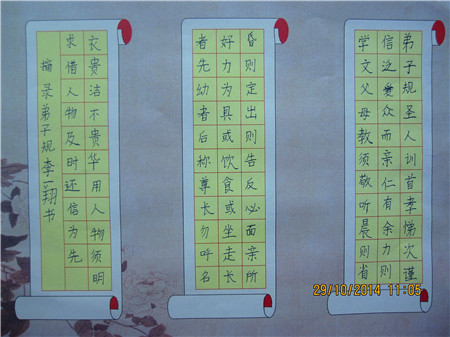 弟子规圣人训首孝悌次谨
信泛爱众而亲仁有余力则
学文父母教须敬听晨则省
昏则定出则告反必面亲所
好力为具或饮食或坐走长
者先幼者后称尊长勿呼名
衣贵洁不贵华用人物须明
求借人物及时还信为先
摘录弟子规李一翔书
29/10/2014 11:05